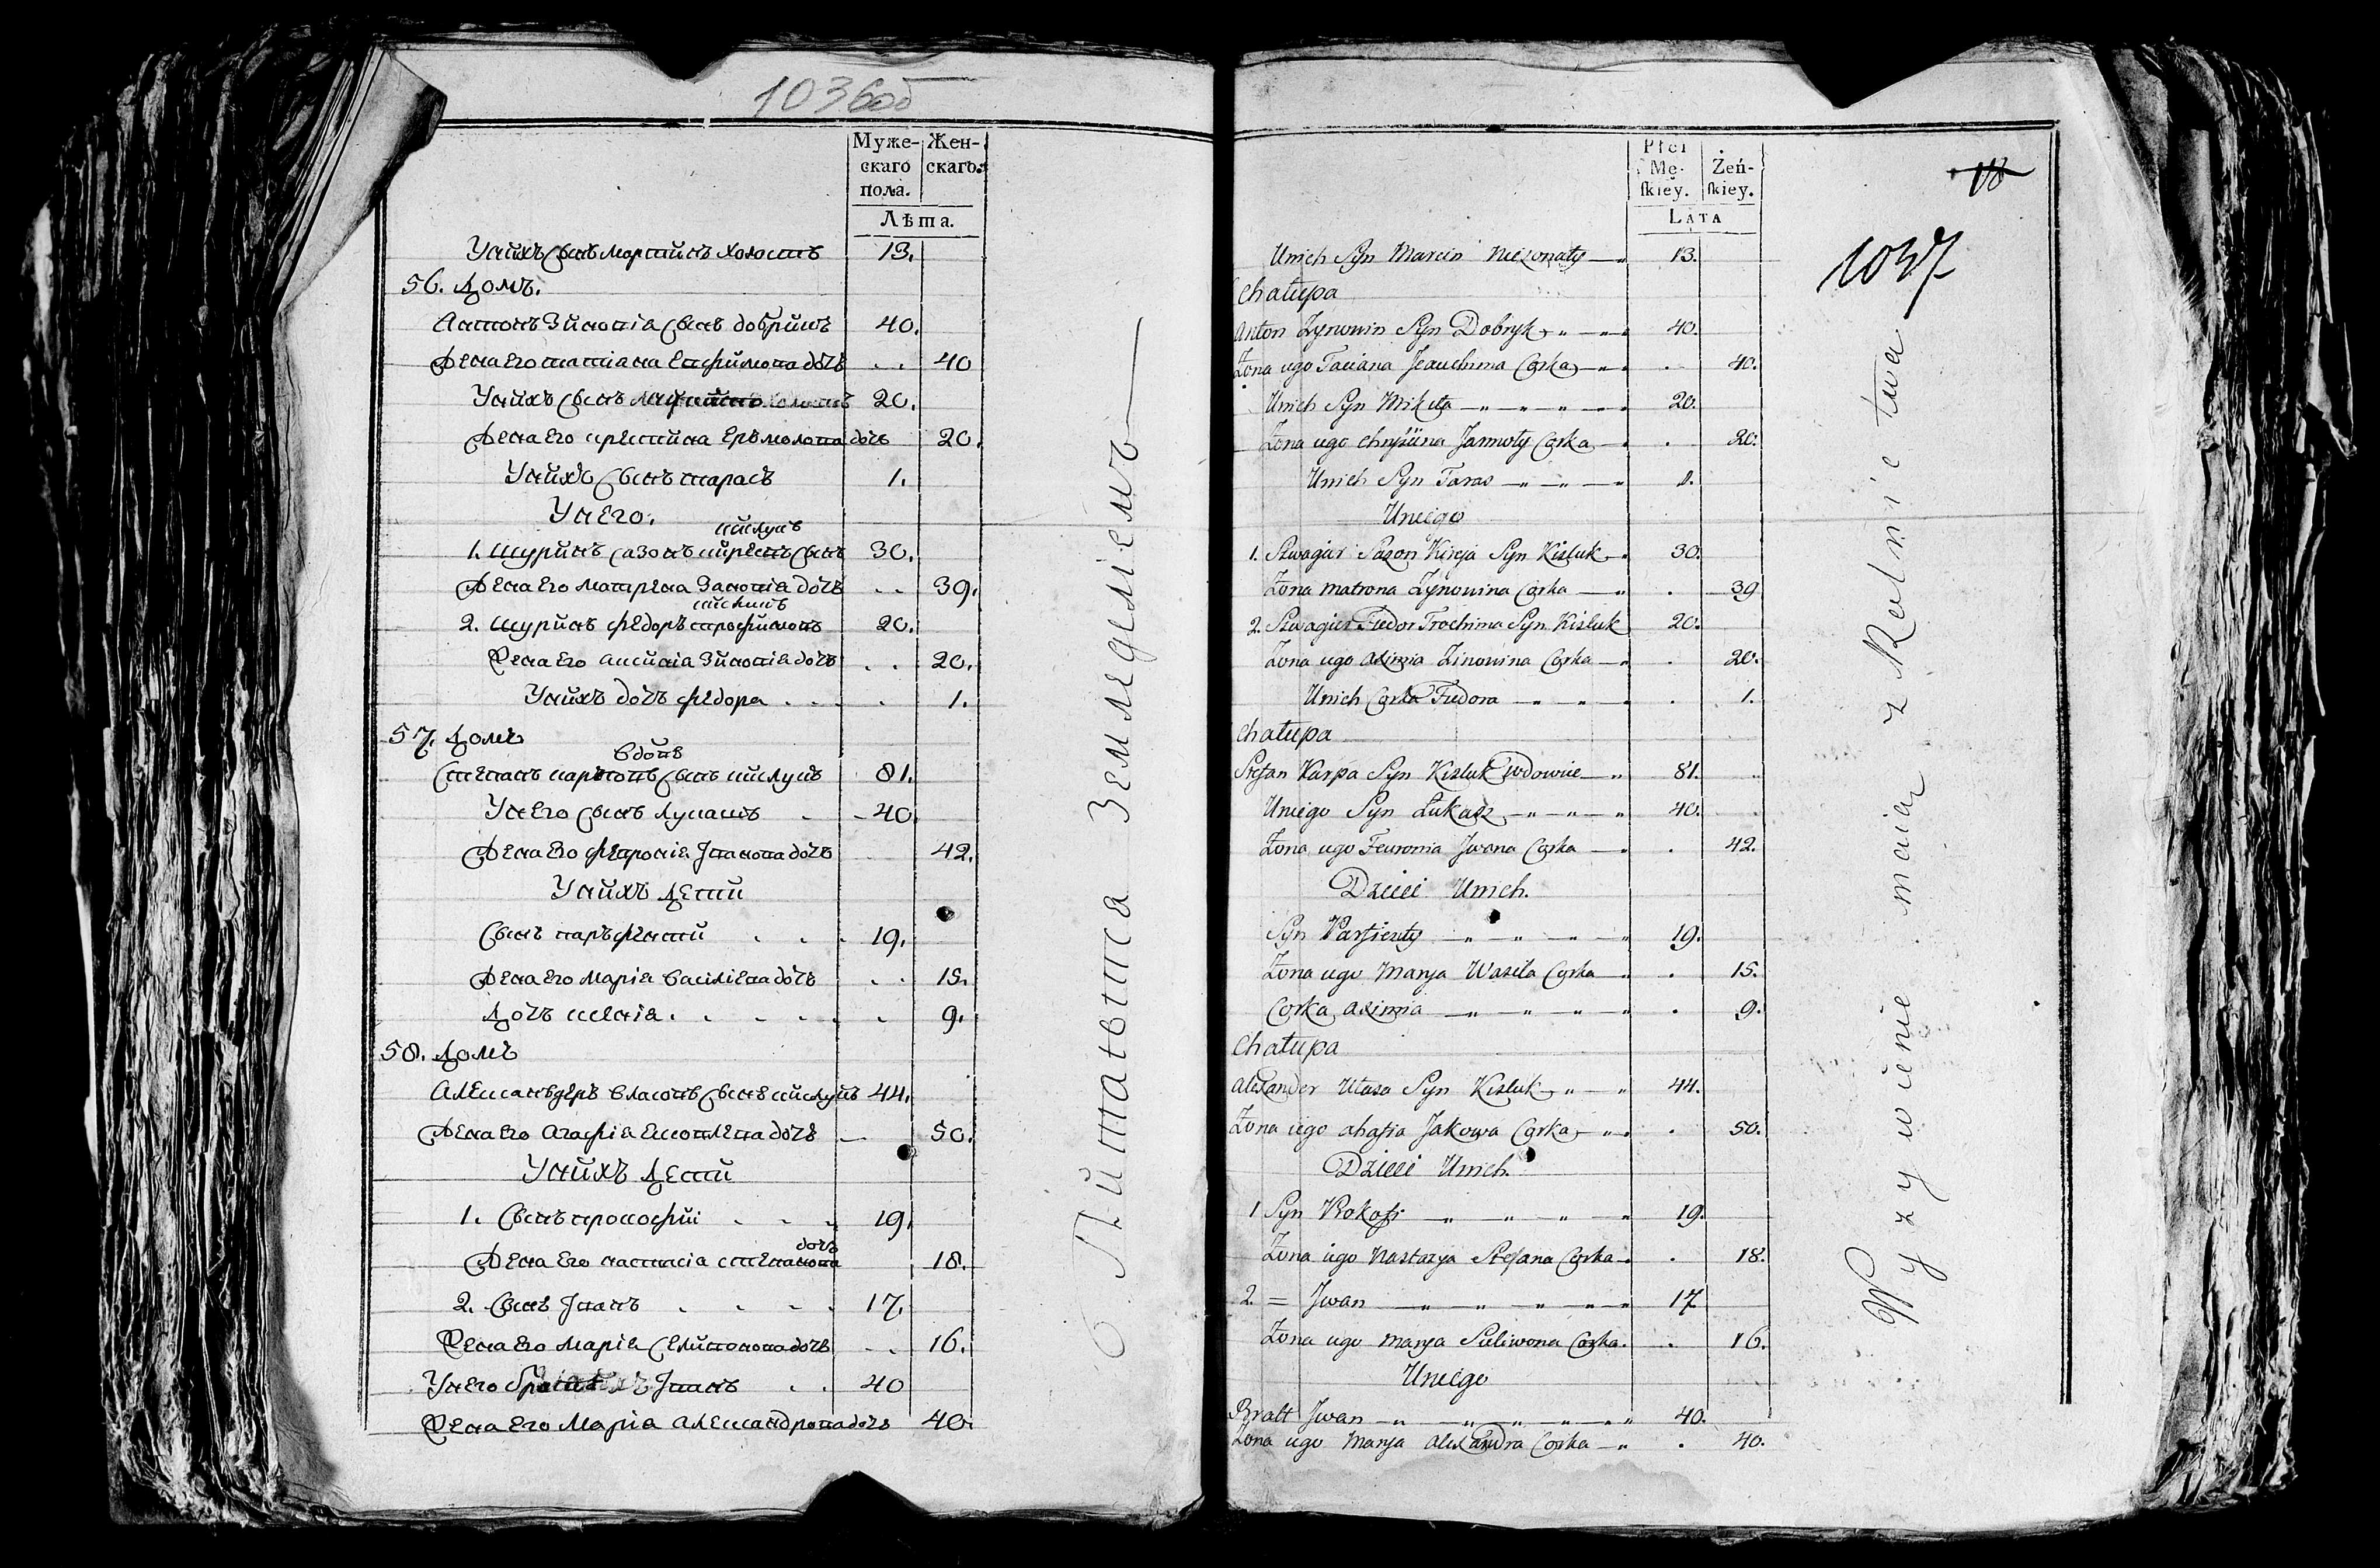 1036об
Муже- Жен-
скаго скаго.
пола.
Лѣта.
Унихъ сынъ Мартинъ холостъ 13.
56. Домъ.
Антонъ Зиновіа сынъ добрикъ 40.
Жена его татіана Евфимова дочь .. 40
Унихъ сынъ 20.
Жена его христина Ермолова дочь 20.
Унихъ сынъ тарасъ 1.
Унего.
кислукъ
1. шуринъ сазонъ киреевъ сынъ 30.
Жена его матрена Зановіа дочь .. 39.
2. шуринъ федоръ трофимовъ 20.
Жена его аксиніа Зиновіа дочь .. 20.
Унихъ дочь федора . . . 1.
57. Домъ
вдовъ
Степанъ карповъ сынъ кислукъ 81.
Унего сынъ лукашъ 40.
Жена его февроніа Іванова дочь 42.
Унихъ дети
Сынъ парѳентій . . . 19.
Жена его маріа василіева дочь .. 15.
Дочь ксеніа . . . . . 9.
58. Домъ
Александеръ власовъ сынъ кислукъ 44.
Жена его агафіа Яковлева дочь 50.
Унихъ дети
1. Сынъ прокофій . . . 19.
дочь
Жена его настасіа степанова 18.
2. Сынъ Іванъ . . . . 17.
Жена его маріа Селивонова дочь .. 16.
Унего братъ Іванъ . . 40
Жена его Маріа александрова дочь 40.
О Питавтса Земледеліемъ
Płci
Mę- Żeń-
skiey. skiey.
LATA
18
1037
Unich Syn Marcin Nieżonaty 13.
Chałupa
Anton Zynowin Syn Dobryk 40.
Żona iego Taciana Jeauchima Corka . 40.
Unich Syn Mikita 20.
Żona iego Chryśtina Jarmoły Corka . 20.
Unich Syn Taras 1.
Uniego
1. Szwagier Sazon Kireja Syn Kisluk 30.
Żona Matrona Zynowina Corka . 39
2. Szwagier Fiedor Trochima Syn Kisluk 20.
Żona iego Axinia Zinowina Corka . 20.
Unich Corka Fiedora . 1.
Chałupa
Stefan Karpa Syn Kisluk Wdowiec 81.
Uniego Syn Łukasz 40.
Żona iego Feuronia Jwana Corka . 42.
Dzieci Unich.
Syn Parfienty 19.
Żona iego Marya Wasila Corka . 15.
Corka Axinia . 9.
Chałupa
Alexander Ułasa Syn Kisluk 44.
Żona iego Ahafia Jakowa Corka . 50.
Dzieci Unich.
1 Syn Prokofi 19.
Żona iego Nastazya Stefana Corka . 18.
2. = Jwan 17
Żona iego Marya Seliwona Corka . 16.
Uniego
Bratt Jwan 40.
Żona iego Marya Alexandra Corka . 40.
Wyzywienie maią z Rolnictwa